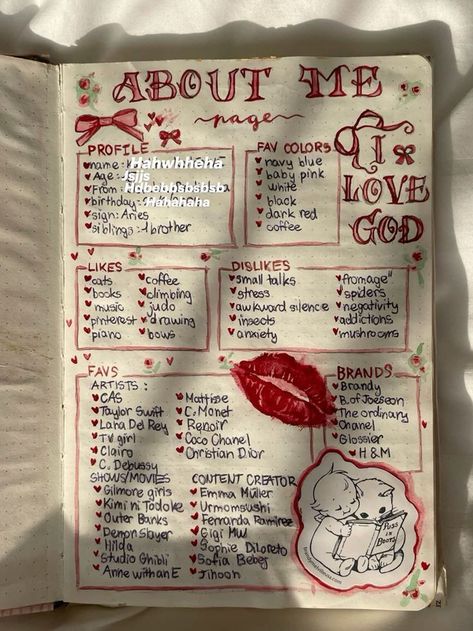 ABOUT ME
page
PROFILE
name:
Hahwhheha
Age:
Jsjjs
From
Hdbebbsbsbsb
birthday:
Hahahaha
sign: Aries
siblings: 1 brother
FAV COLORS
navy blue
baby pink
white
black
dark red
coffee
I
LOVE
GOD
LIKES
cats
books
music
pinterest
piano
coffee
climbing
judo
drawing
bows
DISLIKES
small talks
stress
awkward silence
insects
anxiety
"fromage"
spiders
negativity
addictions
mushrooms
FAVS
ARTISTS :
CAS
Taylor Swift
Lana Del Rey
TV girl
Clairo
C. Debussy
Mattisse
C. Monet
Renoir
Coco Chanel
Christian Dior
BRANDS
Brandy
B. of Joeseon
The ordinary
Chanel
Glossier
H & M
SHOWS/MOVIES
Gilmore girls
Kimi ni Todoke
Outer Banks
Demon Slayer
Hilda
Studio Ghibli
Anne with an E
CONTENT CREATOR
Emma Müller
Urmomsushi
Fernanda Ramirez
Gigi MW
Sophie DiLoreto
Sofia Bebej
Jihooh
Puss
in
Boots